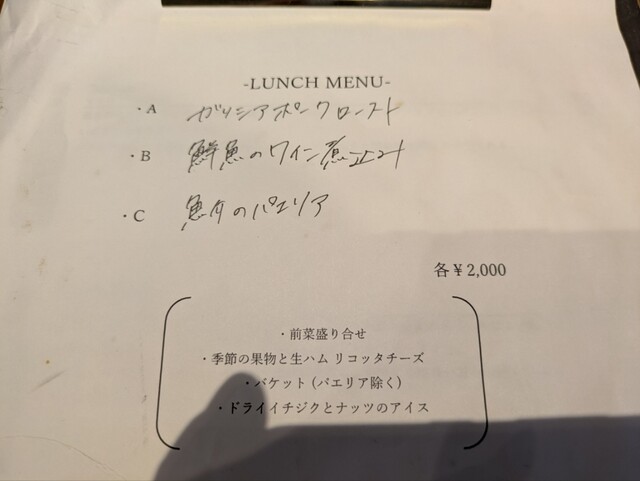 -LUNCH MENU-
・A ガリシアポークロースト
・B 鮮魚のワイン煮込み
・C 魚介のパエリア
各￥2,000
・前菜盛り合せ
・季節の果物と生ハム リコッタチーズ
・バケット (パエリア除く)
・ドライイチジクとナッツのアイス